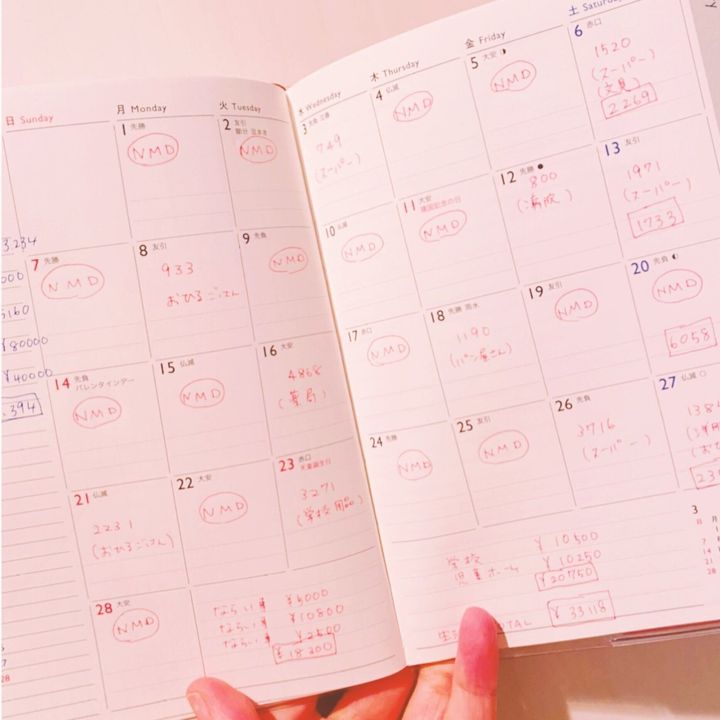 日 Sunday
月 Monday
火 Tuesday
1 先勝
NMD
2 友引
節分
NMD
3.234
000
5160
¥80000
¥40000
.394
7 先勝
NMD
8 友引
933
おひるごはん
9 先負
NMD
14 先負
バレンタインデー
NMD
15 仏滅
NMD
16 大安
4868
(薬局)
21 仏滅
2231
(おひるごはん)
22 大安
NMD
23 赤口
天皇誕生日
3271
(学校用品)
28 大安
NMD
ならい事 ¥5000
ならい事 ¥10800
ならい事 ¥2500
¥18300
水 Wednesday
木 Thursday
金 Friday
土 Saturday
3 大安 立春
749
(スーパー)
4 仏滅
NMD
5 大安
NMD
6 赤口
1520
(スーパー)
(文具)
2269
10 仏滅
NMD
11 大安
建国記念の日
NMD
12 先勝
800
(病院)
13 友引
1971
(スーパー)
1733
17 赤口
NMD
18 先勝 雨水
1190
(パン屋さん)
19 友引
NMD
20 先負
NMD
6058
24 先勝
NMD
25 友引
NMD
26 先負
3716
(スーパー)
27 仏滅
138
(お
23
学校 ¥10500
児童ホーム ¥10250
¥20750
TOTAL ¥33118
3
日 月
7
14
21
28